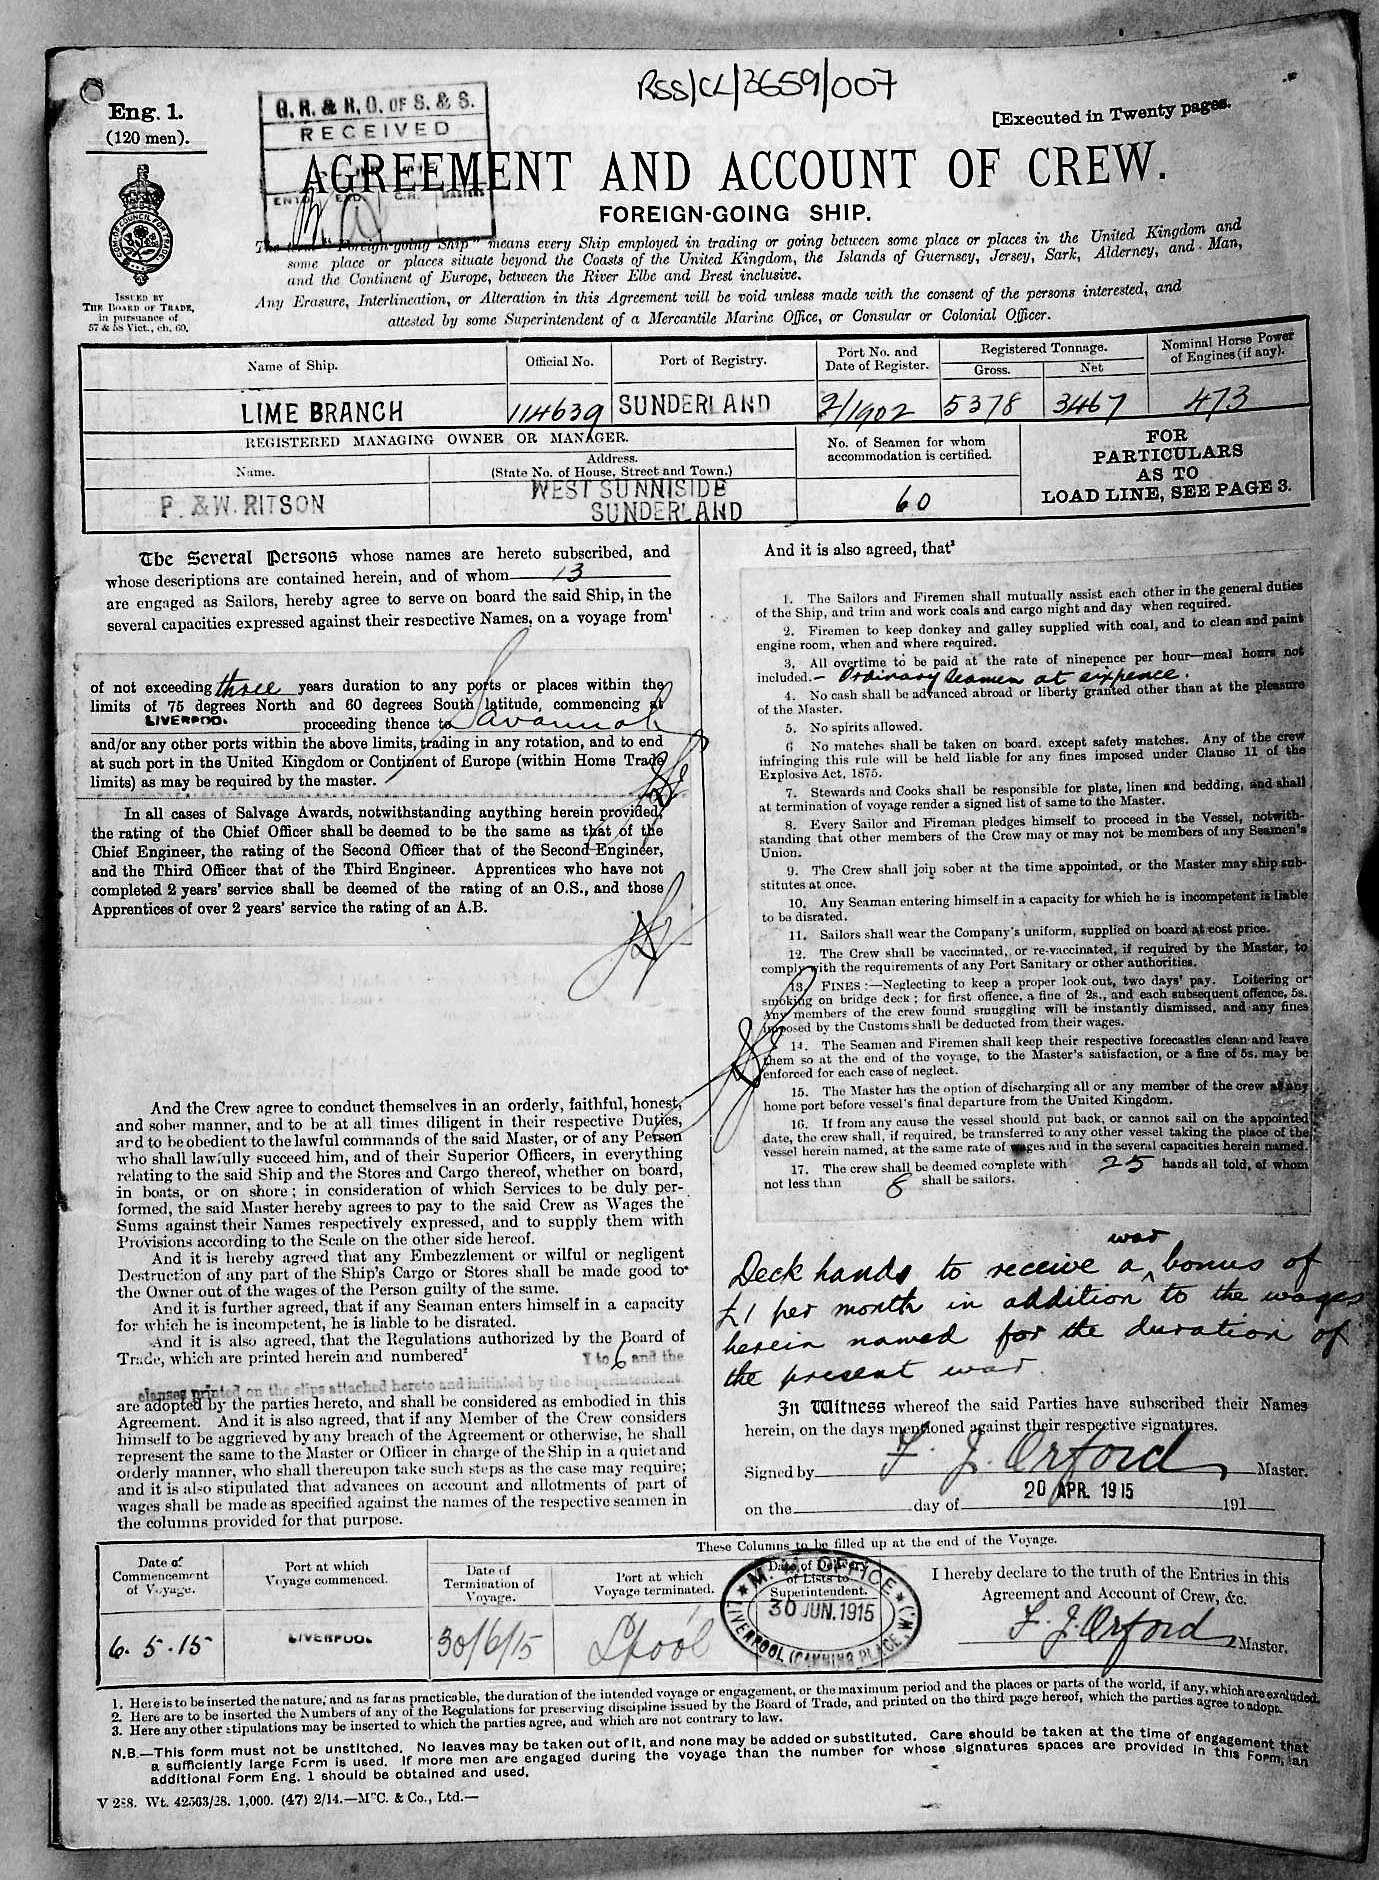 RSS/CL/3659/007
Eng. 1.
(120 men).
G. R. & R. O. OF S. & S.
RECEIVED
[Executed in Twenty pages.
AGREEMENT AND ACCOUNT OF CREW.
FOREIGN-GOING SHIP.
ISSUED BY
THE BOARD OF TRADE,
in pursuance of
57 & 58 Vict., ch. 60.
The term "Foreign-going Ship" means every Ship employed in trading or going between some place or places in the United Kingdom and
some place or places situate beyond the Coasts of the United Kingdom, the Islands of Guernsey, Jersey, Sark, Alderney, and Man,
and the Continent of Europe, between the River Elbe and Brest inclusive.
Any Erasure, Interlineation, or Alteration in this Agreement will be void unless made with the consent of the persons interested, and
attested by some Superintendent of a Mercantile Marine Office, or Consular or Colonial Officer.
Name of Ship. Official No. Port of Registry. Port No. and Date of Register. Registered Tonnage. Gross. Net Nominal Horse Power of Engines (if any).
LIME BRANCH 114639 SUNDERLAND 2/1902 5378 3467 473
REGISTERED MANAGING OWNER OR MANAGER.
Name. Address.
(State No. of House, Street and Town.)
No. of Seamen for whom
accommodation is certified.
FOR
PARTICULARS
AS TO
LOAD LINE, SEE PAGE 3.
F. & W. RITSON
WEST SUNNISIDE
SUNDERLAND
60
The Several Persons whose names are hereto subscribed, and
whose descriptions are contained herein, and of whom 13
are engaged as Sailors, hereby agree to serve on board the said Ship, in the
several capacities expressed against their respective Names, on a voyage from¹
of not exceeding three years duration to any ports or places within the
limits of 75 degrees North and 60 degrees South latitude, commencing at
LIVERPOOL proceeding thence to Savannah
and/or any other ports within the above limits, trading in any rotation, and to end
at such port in the United Kingdom or Continent of Europe (within Home Trade
limits) as may be required by the master.
In all cases of Salvage Awards, notwithstanding anything herein provided,
the rating of the Chief Officer shall be deemed to be the same as that of the
Chief Engineer, the rating of the Second Officer that of the Second Engineer,
and the Third Officer that of the Third Engineer. Apprentices who have not
completed 2 years' service shall be deemed of the rating of an O.S., and those
Apprentices of over 2 years' service the rating of an A.B.
And the Crew agree to conduct themselves in an orderly, faithful, honest,
and sober manner, and to be at all times diligent in their respective Duties,
and to be obedient to the lawful commands of the said Master, or of any Person
who shall lawfully succeed him, and of their Superior Officers, in everything
relating to the said Ship and the Stores and Cargo thereof, whether on board,
in boats, or on shore; in consideration of which Services to be duly per-
formed, the said Master hereby agrees to pay to the said Crew as Wages the
Sums against their Names respectively expressed, and to supply them with
Provisions according to the Scale on the other side hereof.
And it is hereby agreed that any Embezzlement or wilful or negligent
Destruction of any part of the Ship's Cargo or Stores shall be made good to
the Owner out of the wages of the Person guilty of the same.
And it is further agreed, that if any Seaman enters himself in a capacity
for which he is incompetent, he is liable to be disrated.
And it is also agreed, that the Regulations authorized by the Board of
Trade, which are printed herein and numbered² 1 to 6 and the
clauses printed on the slips attached hereto and initialed by the Superintendent.
are adopted by the parties hereto, and shall be considered as embodied in this
Agreement. And it is also agreed, that if any Member of the Crew considers
himself to be aggrieved by any breach of the Agreement or otherwise, he shall
represent the same to the Master or Officer in charge of the Ship in a quiet and
orderly manner, who shall thereupon take such steps as the case may require;
and it is also stipulated that advances on account and allotments of part of
wages shall be made as specified against the names of the respective seamen in
the columns provided for that purpose.
And it is also agreed, that³
1. The Sailors and Firemen shall mutually assist each other in the general duties
of the Ship, and trim and work coals and cargo night and day when required.
2. Firemen to keep donkey and galley supplied with coal, and to clean and paint
engine room, when and where required.
3. All overtime to be paid at the rate of ninepence per hour—meal hours not
included. - Ordinary Seamen at sixpence.
4. No cash shall be advanced abroad or liberty granted other than at the pleasure
of the Master.
5. No spirits allowed.
6 No matches shall be taken on board, except safety matches. Any of the crew
infringing this rule will be held liable for any fines imposed under Clause 11 of the
Explosive Act, 1875.
7. Stewards and Cooks shall be responsible for plate, linen and bedding, and shall
at termination of voyage render a signed list of same to the Master.
8. Every Sailor and Fireman pledges himself to proceed in the Vessel, notwith-
standing that other members of the Crew may or may not be members of any Seamen's
Union.
9. The Crew shall join sober at the time appointed, or the Master may ship sub-
stitutes at once.
10. Any Seaman entering himself in a capacity for which he is incompetent is liable
to be disrated.
11. Sailors shall wear the Company's uniform, supplied on board at cost price.
12. The Crew shall be vaccinated, or re-vaccinated, if required by the Master, to
comply with the requirements of any Port Sanitary or other authorities.
13. FINES:—Neglecting to keep a proper look out, two days' pay. Loitering or
smoking on bridge deck; for first offence, a fine of 2s., and each subsequent offence, 5s.
Any members of the crew found smuggling will be instantly dismissed, and any fines
imposed by the Customs shall be deducted from their wages.
14. The Seamen and Firemen shall keep their respective forecastles clean and leave
them so at the end of the voyage, to the Master's satisfaction, or a fine of 5s. may be
enforced for each case of neglect.
15. The Master has the option of discharging all or any member of the crew at any
home port before vessel's final departure from the United Kingdom.
16. If from any cause the vessel should put back, or cannot sail on the appointed
date, the crew shall, if required, be transferred to any other vessel taking the place of the
vessel herein named, at the same rate of wages and in the several capacities herein named.
17. The crew shall be deemed complete with 25 hands all told, of whom
not less than 8 shall be sailors.
war
Deck hands to receive a bonus of
£1 per month in addition to the wages
herein named for the duration of
the present war.
In Witness whereof the said Parties have subscribed their Names
herein, on the days mentioned against their respective signatures.
Signed by F. J. Orford Master.
on the day of 20 APR. 1915 191
These Columns to be filled up at the end of the Voyage.
Date of
Commencement
of Voyage.
Port at which
Voyage commenced.
Date of
Termination of
Voyage.
Port at which
Voyage terminated.
Date of Delivery
of Lists to
Superintendent.
I hereby declare to the truth of the Entries in this
Agreement and Account of Crew, &c.
6.5.15 LIVERPOOL 30/6/15 L'pool
M. M. OFFICE
30 JUN. 1915
LIVERPOOL (CANNING PLACE, W.)
F. J. Orford Master.
1. Here is to be inserted the nature, and as far as practicable, the duration of the intended voyage or engagement, or the maximum period and the places or parts of the world, if any, which are excluded.
2. Here are to be inserted the Numbers of any of the Regulations for preserving discipline issued by the Board of Trade, and printed on the third page hereof, which the parties agree to adopt.
3. Here any other stipulations may be inserted to which the parties agree, and which are not contrary to law.
N.B.—This form must not be unstitched. No leaves may be taken out of it, and none may be added or substituted. Care should be taken at the time of engagement that
a sufficiently large Form is used. If more men are engaged during the voyage than the number for whose signatures spaces are provided in this Form, an
additional Form Eng. 1 should be obtained and used.
V 288. Wt. 42563/28. 1,000. (47) 2/14.—McC. & Co., Ltd.—